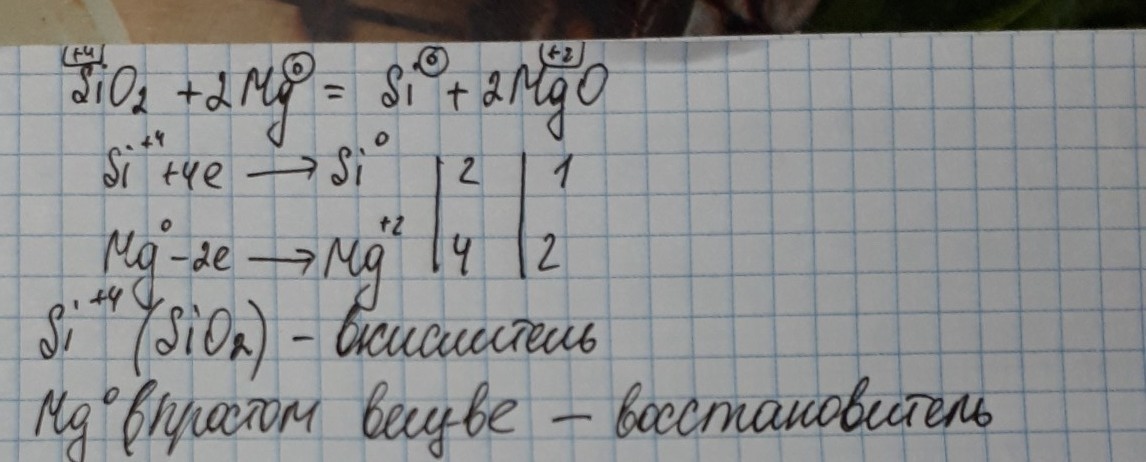 SiO₂ + 2Mg⁰ = Si⁰ + 2MgO (+4) (+2)
Si⁺⁴ +4e → Si⁰ | 2 | 1
Mg⁰ -2e → Mg⁺² | 4 | 2
Si⁺⁴ (SiO₂) - окислитель
Mg⁰ в простом вещ-ве - восстановитель